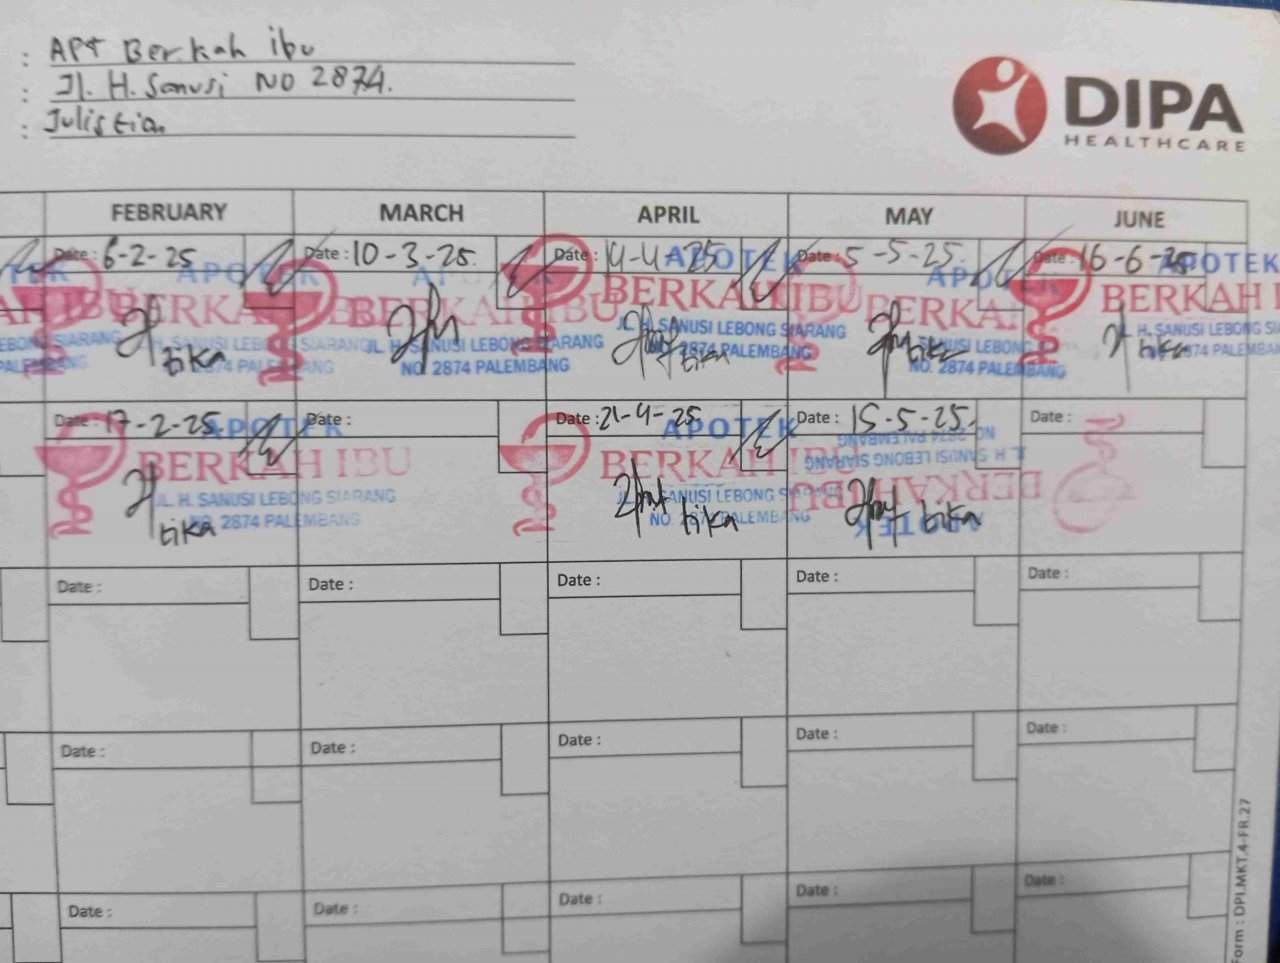 : APT Berkah ibu
: Jl. H. Sanusi NO 2874.
: Julistian
DIPA
HEALTHCARE
FEBRUARY MARCH APRIL MAY JUNE
Date : 6-2-25 Date : 10-3-25. Date : 14-4-25 Date : 5-5-25. Date : 16-6-25
APOTEK APOTEK APOTEK APOTEK
BERKAH IBU BERKAH IBU BERKAH IBU BERKAH
JL. H. SANUSI LEBONG SIARANG JL. H. SANUSI LEBONG SIARANG H. SANUSI LEBONG SIARANG
NO. 2874 PALEMBANG NO. 2874 PALEMBANG NO. 2874 PALEMBANG
tika tika tika tika
Date : 17-2-25 Date : Date : 21-4-25 Date : 15-5-25. Date :
APOTEK APOTEK APOTEK
BERKAH IBU BERKAH IBU BERKAH IBU
JL. H. SANUSI LEBONG SIARANG SANUSI LEBONG JL. H SANUSI LEBONG SIARANG
NO. 2874 PALEMBANG NO. 2874 PALEMBANG NO. 2874 PALEMBANG
tika tika tika
Date : Date : Date : Date : Date :
Date : Date : Date : Date : Date :
Date : Date : Date : Date : Date :
Form : DPI.MKT.4-FR.27